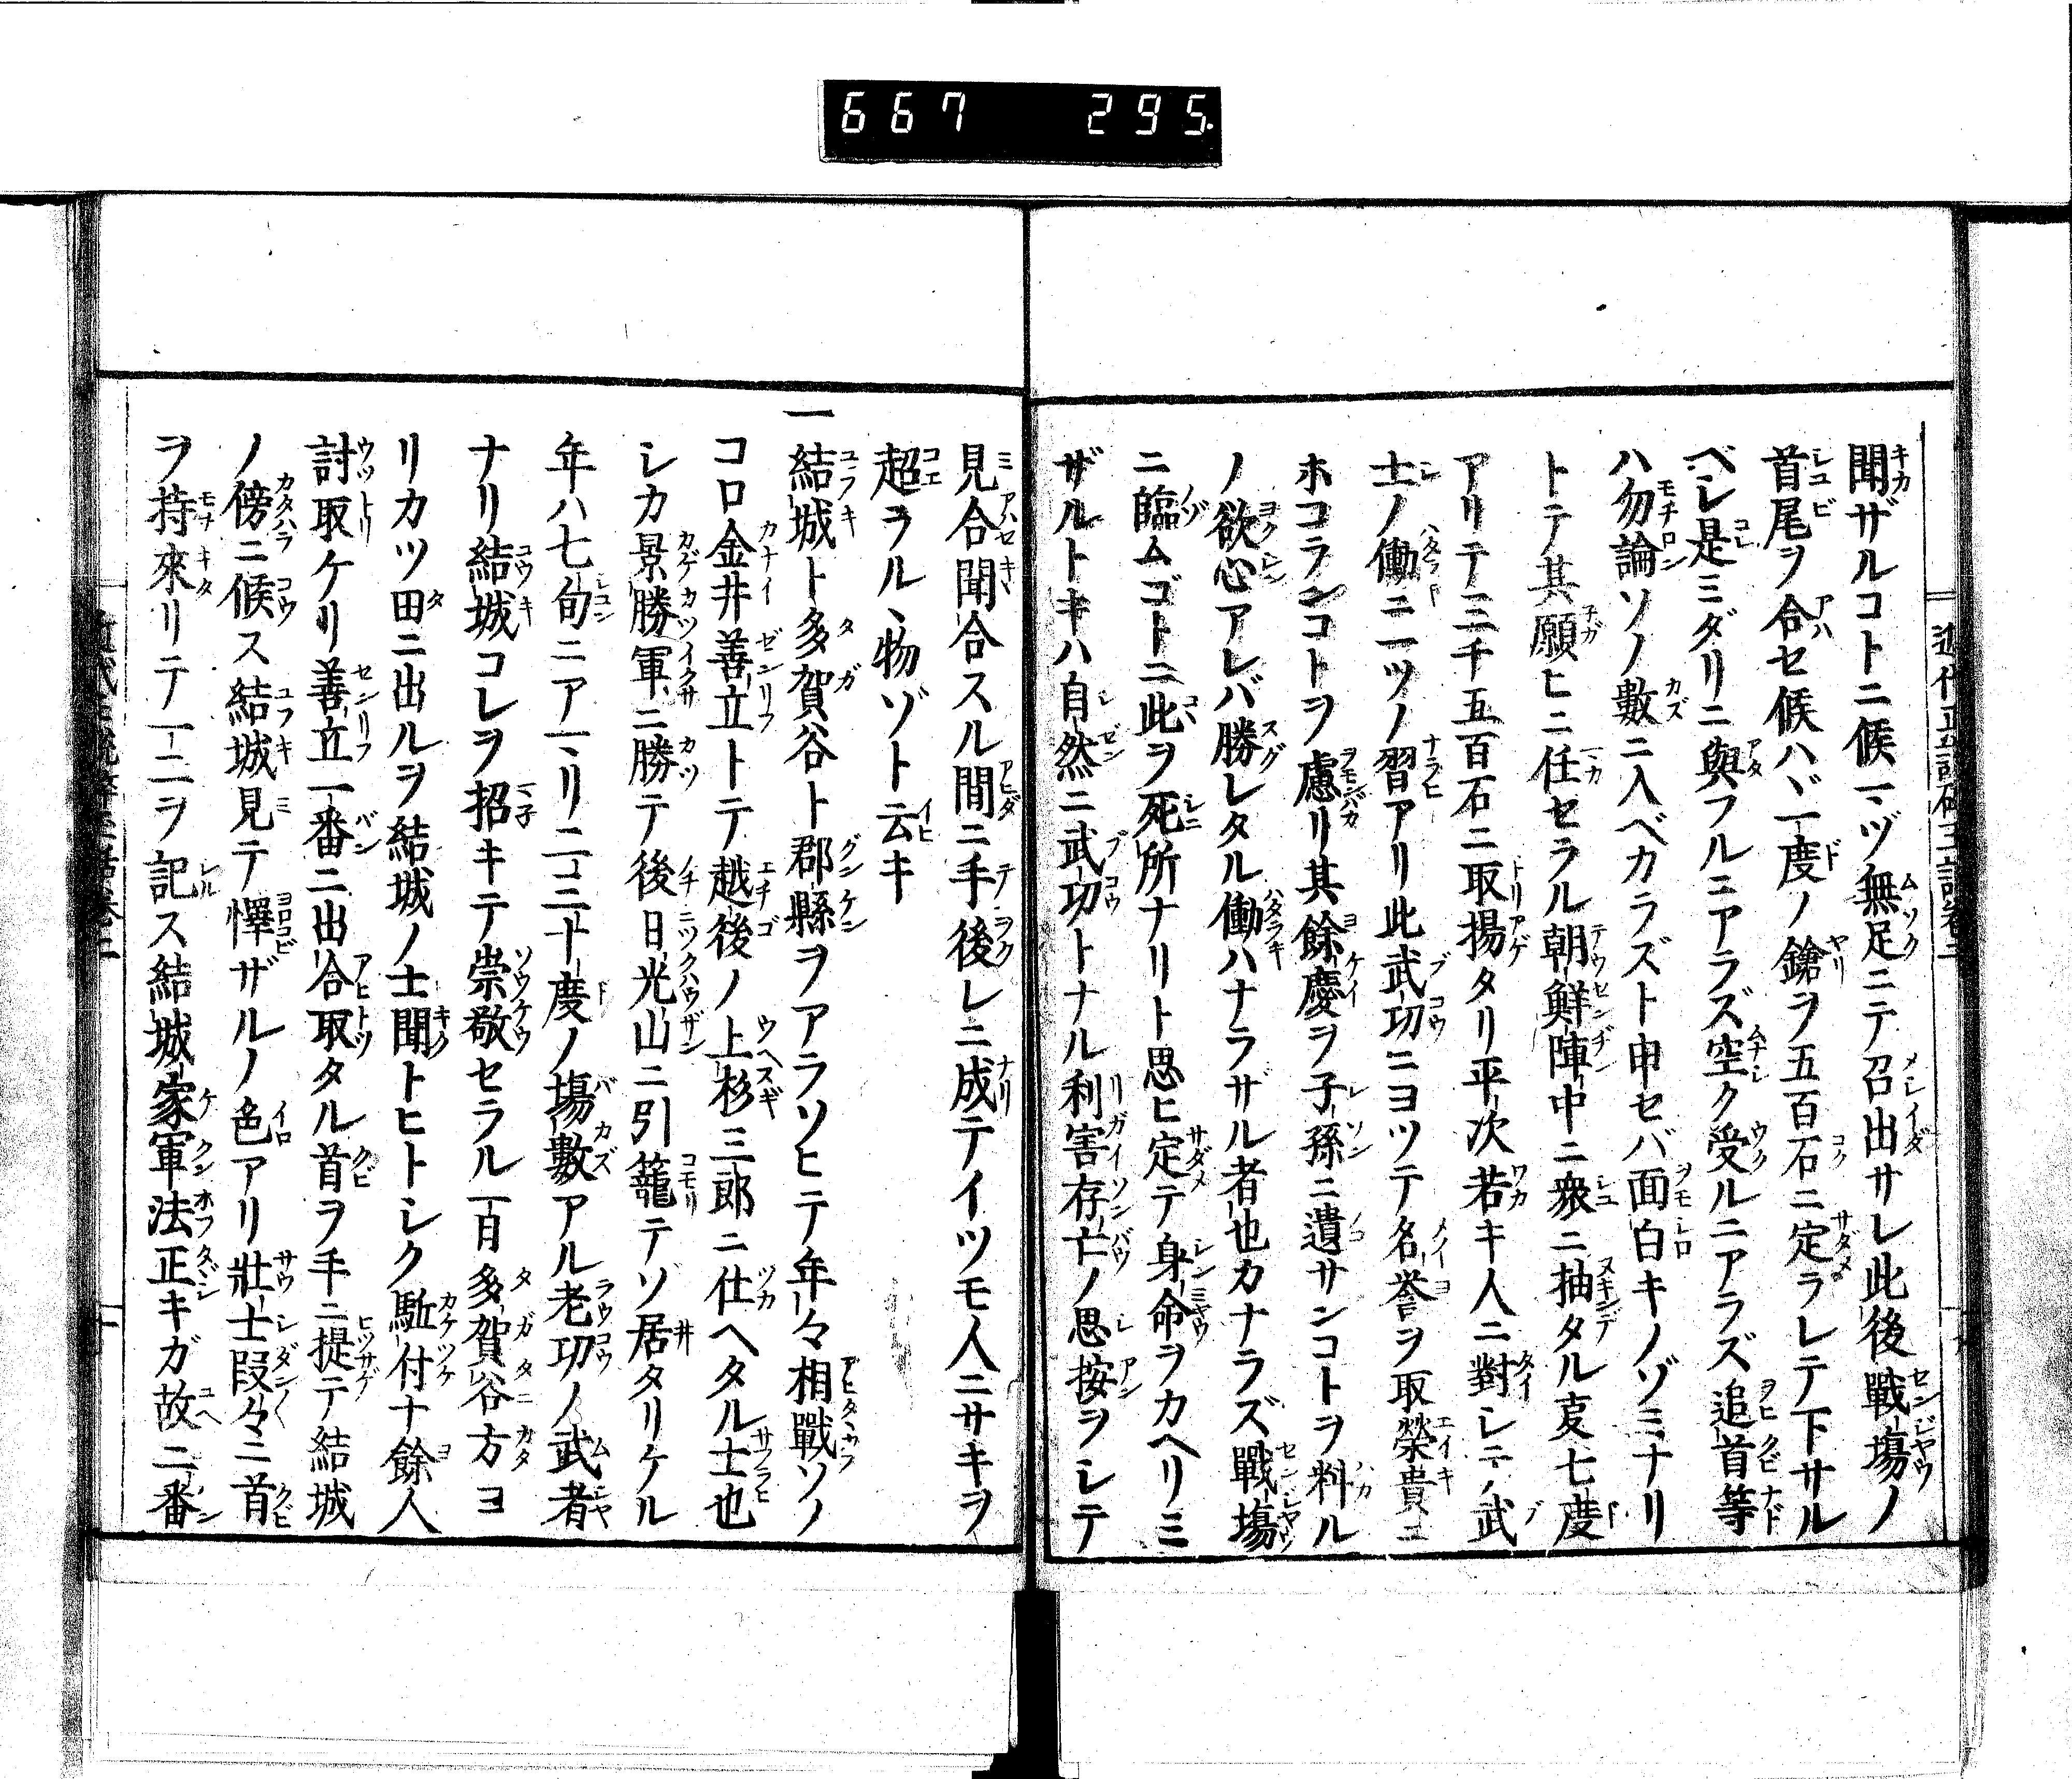 667 295
聞ザルコトニ候マヅ無足ニテ召出サレ此後戰場ノ
首尾ヲ合セ候ハヾ一度ノ鎗ヲ五百石ニ定ラレテ下サル
ベシ是ミダリニ與フルニアラズ空ク受ルニアラズ追首等
ハ勿論ソノ數ニ入ベカラズト申セバ面白キノゾミナリ
トテ其願ヒニ任セラル朝鮮陣中ニ衆ニ抽タル叓七度
アリテ三千五百石ニ取揚タリ平次若キ人ニ對シテノ武
士ノ働ニ一ツノ習アリ此武功ニヨツテ名誉ヲ取榮貴ニ
ホコランコトヲ慮リ其餘慶ヲ子孫ニ遺サンコトヲ料ル
ノ欲心アレバ勝レタル働ハナラザル者也カナラズ戰場
ニ臨ムゴトニ此ヲ死所ナリト思ヒ定テ身命ヲカヘリミ
ザルトキハ自然ニ武功トナル利害存亡ノ思按ヲシテ
見合聞合スル間ニ手後レニ成テイツモ人ニサキヲ
超ラルヽ物ゾト云キ
一結城ト多賀谷ト郡縣ヲアラソヒテ年々相戰ソノ
コロ金井善立トテ越後ノ上杉三郎ニ仕ヘタル士也
シカ景勝軍ニ勝テ後日光山ニ引籠テゾ居タリケル
年ハ七旬ニアマリ二三十度ノ場數アル老功ノ武者
ナリ結城コレヲ招キテ崇敬セラル一日多賀谷方ヨ
リカツ田ニ出ルヲ結城ノ士聞トヒトシク駈付十餘人
討取ケリ善立一番ニ出合取タル首ヲ手ニ提テ結城
ノ傍ニ候ス結城見テ懌ザルノ色アリ壯士段々ニ首
ヲ持來リテ一二ヲ記ス結城家軍法正キガ故ニ番